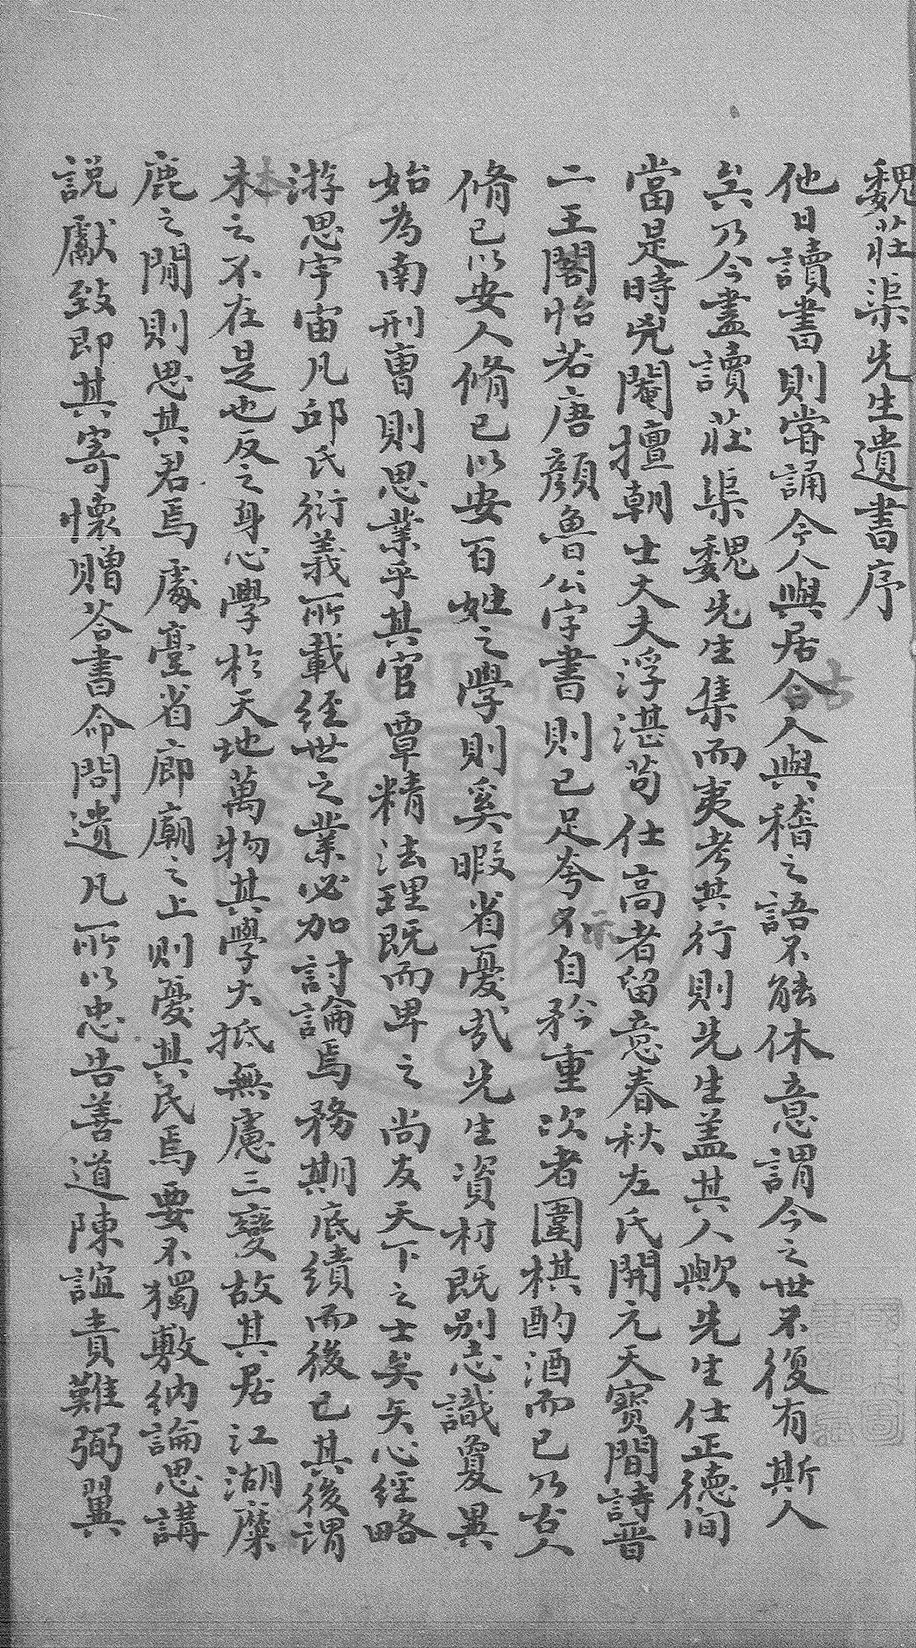 魏莊渠先生遺書序
他日讀書則嘗誦今人與居今人與稽之語不能休意謂今之世不復有斯人
矣乃今盡讀莊渠魏先生集而夷考其行則先生蓋其人歟先生仕正德间
當是時兇閹擅朝士大夫浮湛苟仕高者留意春秋左氏開元天寶間詩晋
二王閣帖若唐顏魯公字書則已足夸不自矜重次者圍棋酌酒而已乃古人
脩己以安人脩己以安百姓之學則奚暇省憂哉先生資材既别志識夐異
始為南刑曹則思業乎其官覃精法理既而卑之尚友天下之士矣矢心經略
游思宇宙凡邱氏衍義所載經世之業必加討論焉務期底績而後已其後謂
本之不在是也反之身心學於天地萬物其學大抵無慮三變故其居江湖糜
鹿之閒則思其君焉處臺省廊廟之上則憂其民焉要不獨敷納論思講
説獻致即其寄懷贈荅書命問遺凡所以忠告善道陳誼責難弼翼